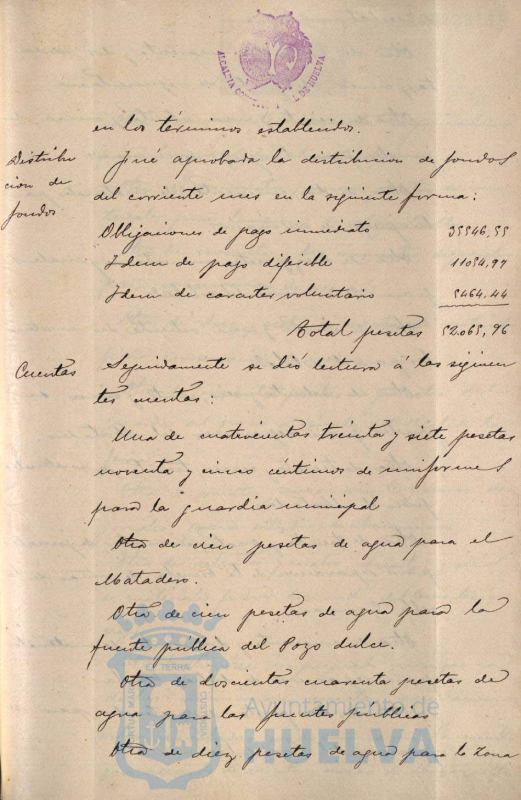 ALCALDIA CONSTITUCIONAL DE HUELVA
en los términos establecidos.
Distribu
cion de
fondos
Fué aprobada la distribucion de fondos
del corriente mes en la siguiente forma:
Obligaciones de pago inmediato 35546,55
Idem de pago diferible 11054,97
Idem de caracter voluntario 5464,44
Total pesetas 52.065,96
Cuentas
Seguidamente se dió lectura á las siguien
tes cuentas:
Una de cuatrocientas treinta y siete pesetas
noventa y cinco céntimos de uniformes
para la guardia municipal
Otra de cien pesetas de agua para el
Matadero.
Otra de cien pesetas de agua para la
fuente pública del Pozo dulce.
Otra de doscientas cuarenta pesetas de
agua para las fuentes públicas
Otra de diez pesetas de agua para la Zona
Ayuntamiento de
HUELVA